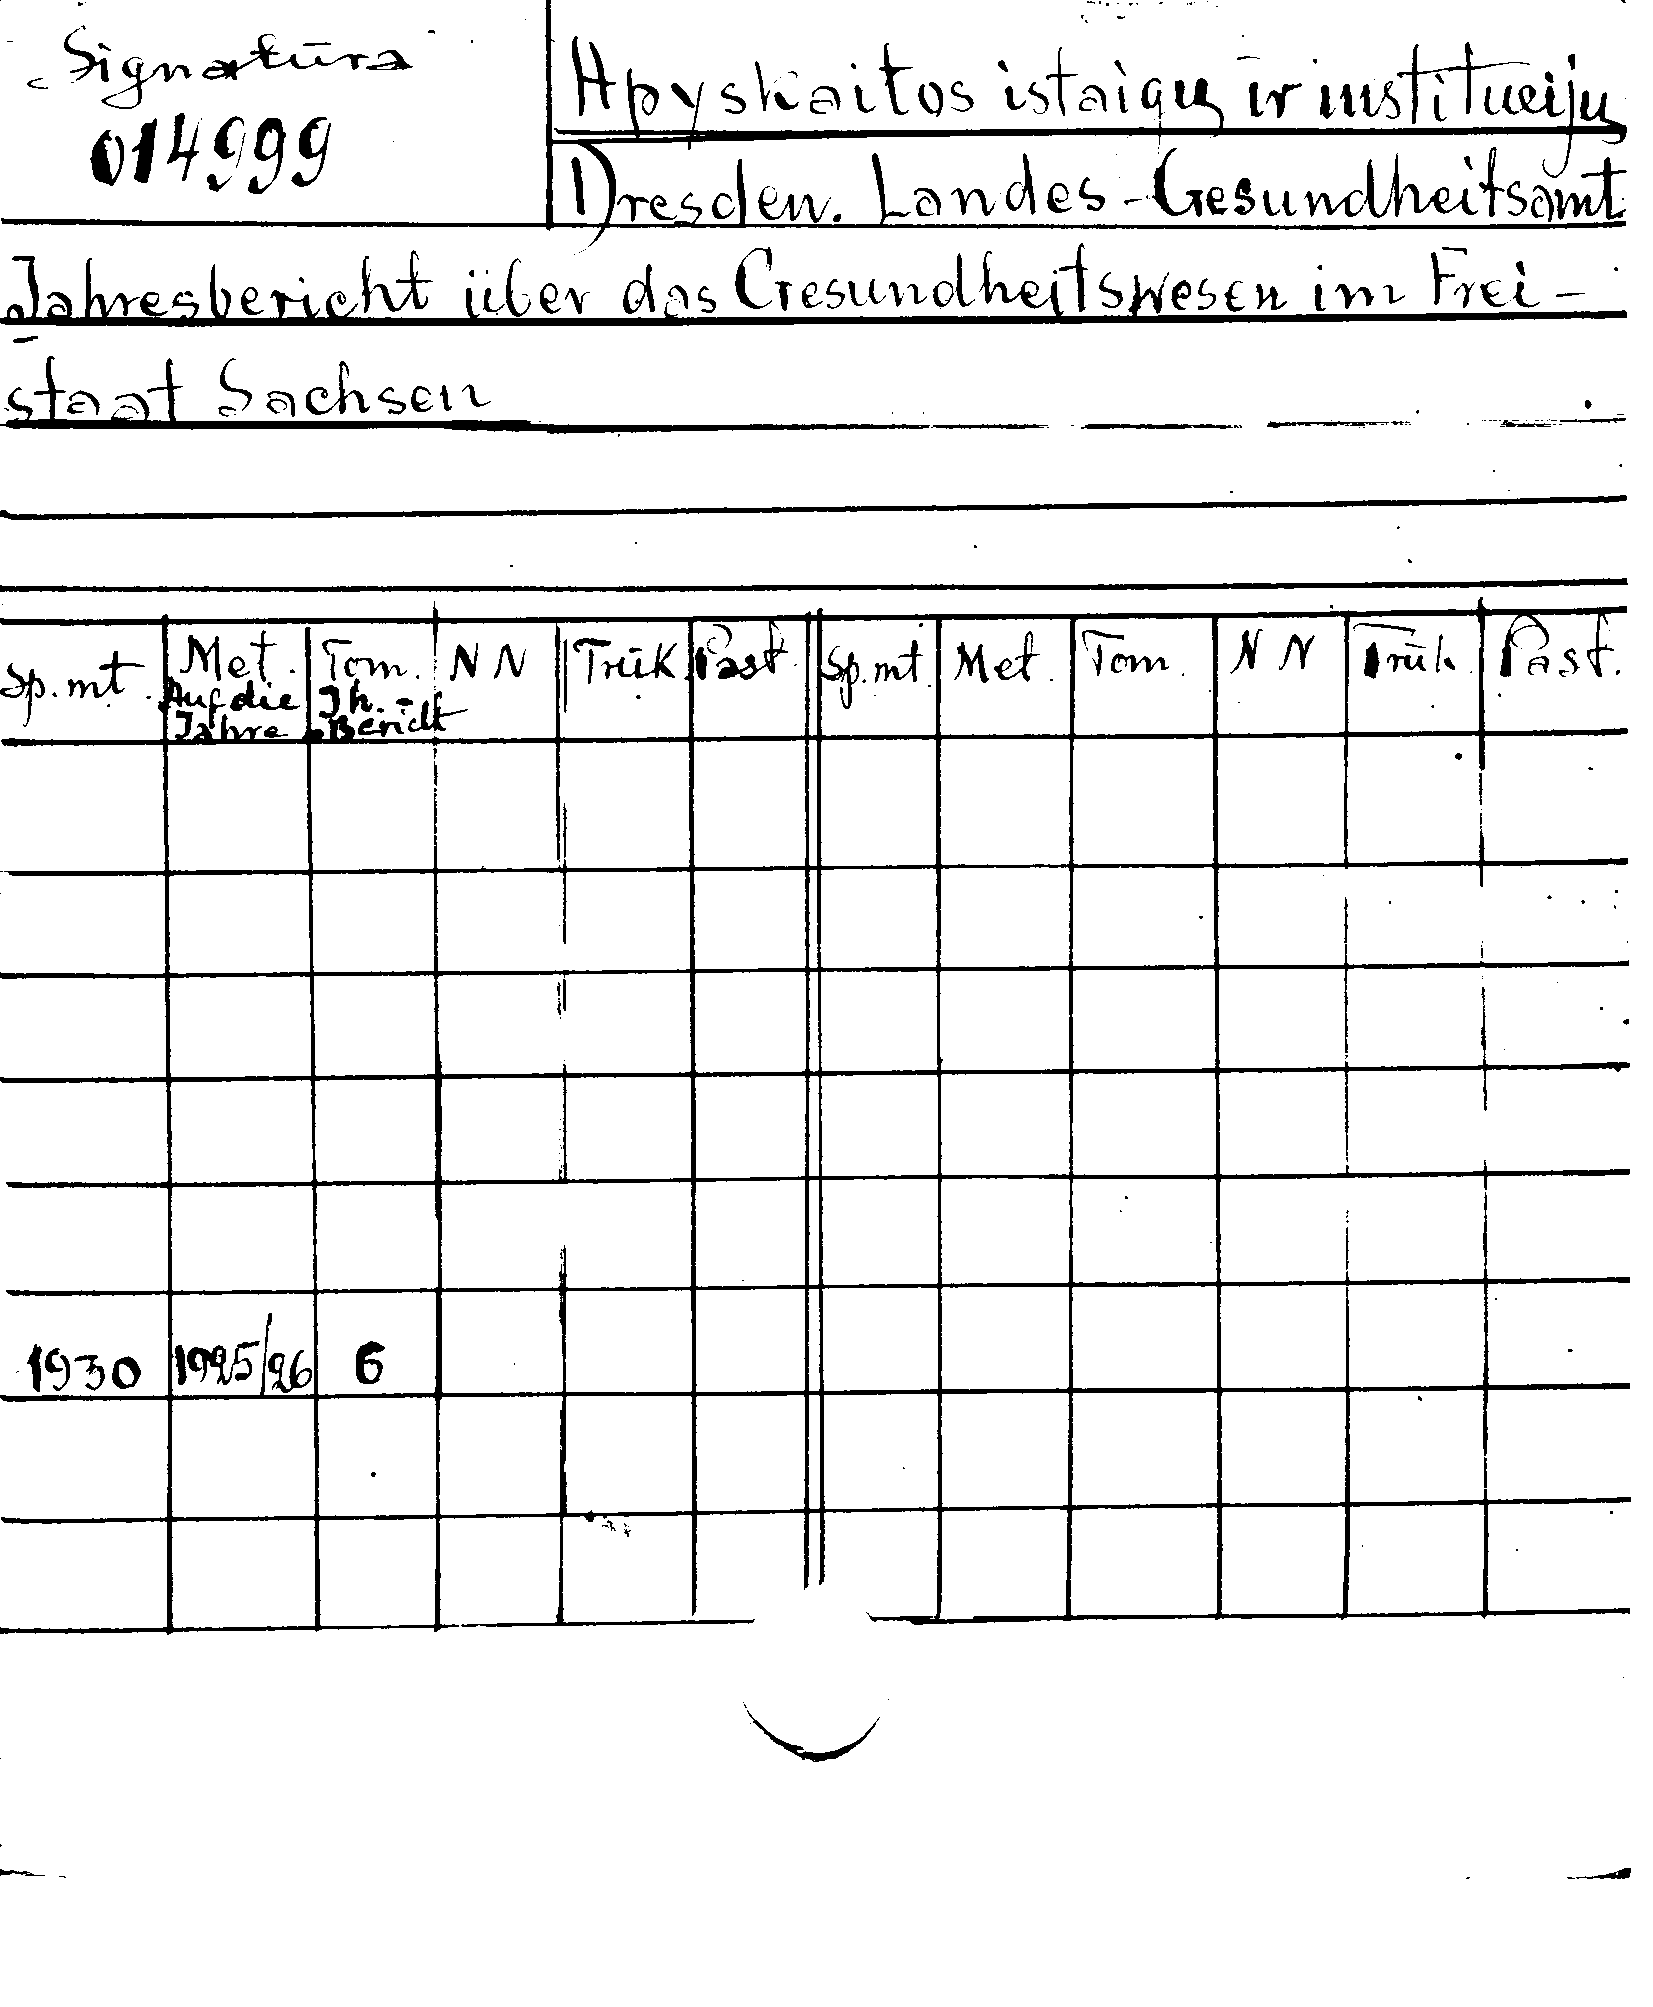 Signatūra
014999
Apyskaitos istaigų ir institucijų
Dresden. Landes-Gesundheitsamt
Jahresbericht über das Gesundheitswesen im Frei-
staat Sachsen
Sp. mt. Met. Tom. N N Trūk. Past. Sp. mt. Met. Tom. N N Trūk. Past.
Auf die Jh.-
Jahre Bericht
1930 1925/26 6